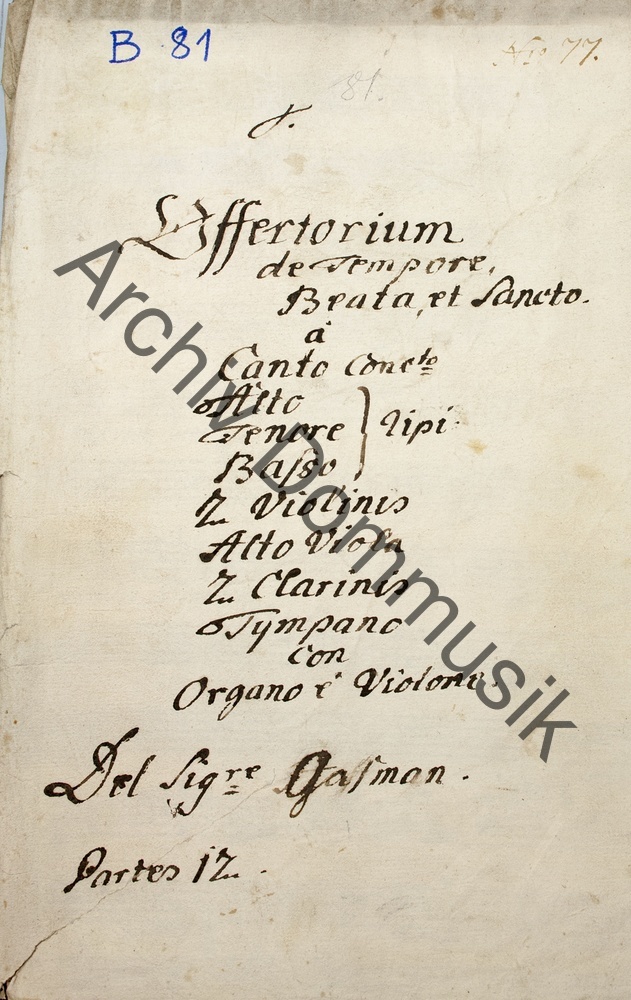 B 81
No 77.
81.
Offertorium
de Tempore,
Beata, et Sancto.
à
Canto Conc:to
Alto
Tenore
Basso
Ripi:
2 Violinis
Alto Viola
2 Clarinis
Tympano
Con
Organo è Violone.
Del Sig:re Gasman.
Partes 12.
Archiv Dommusik